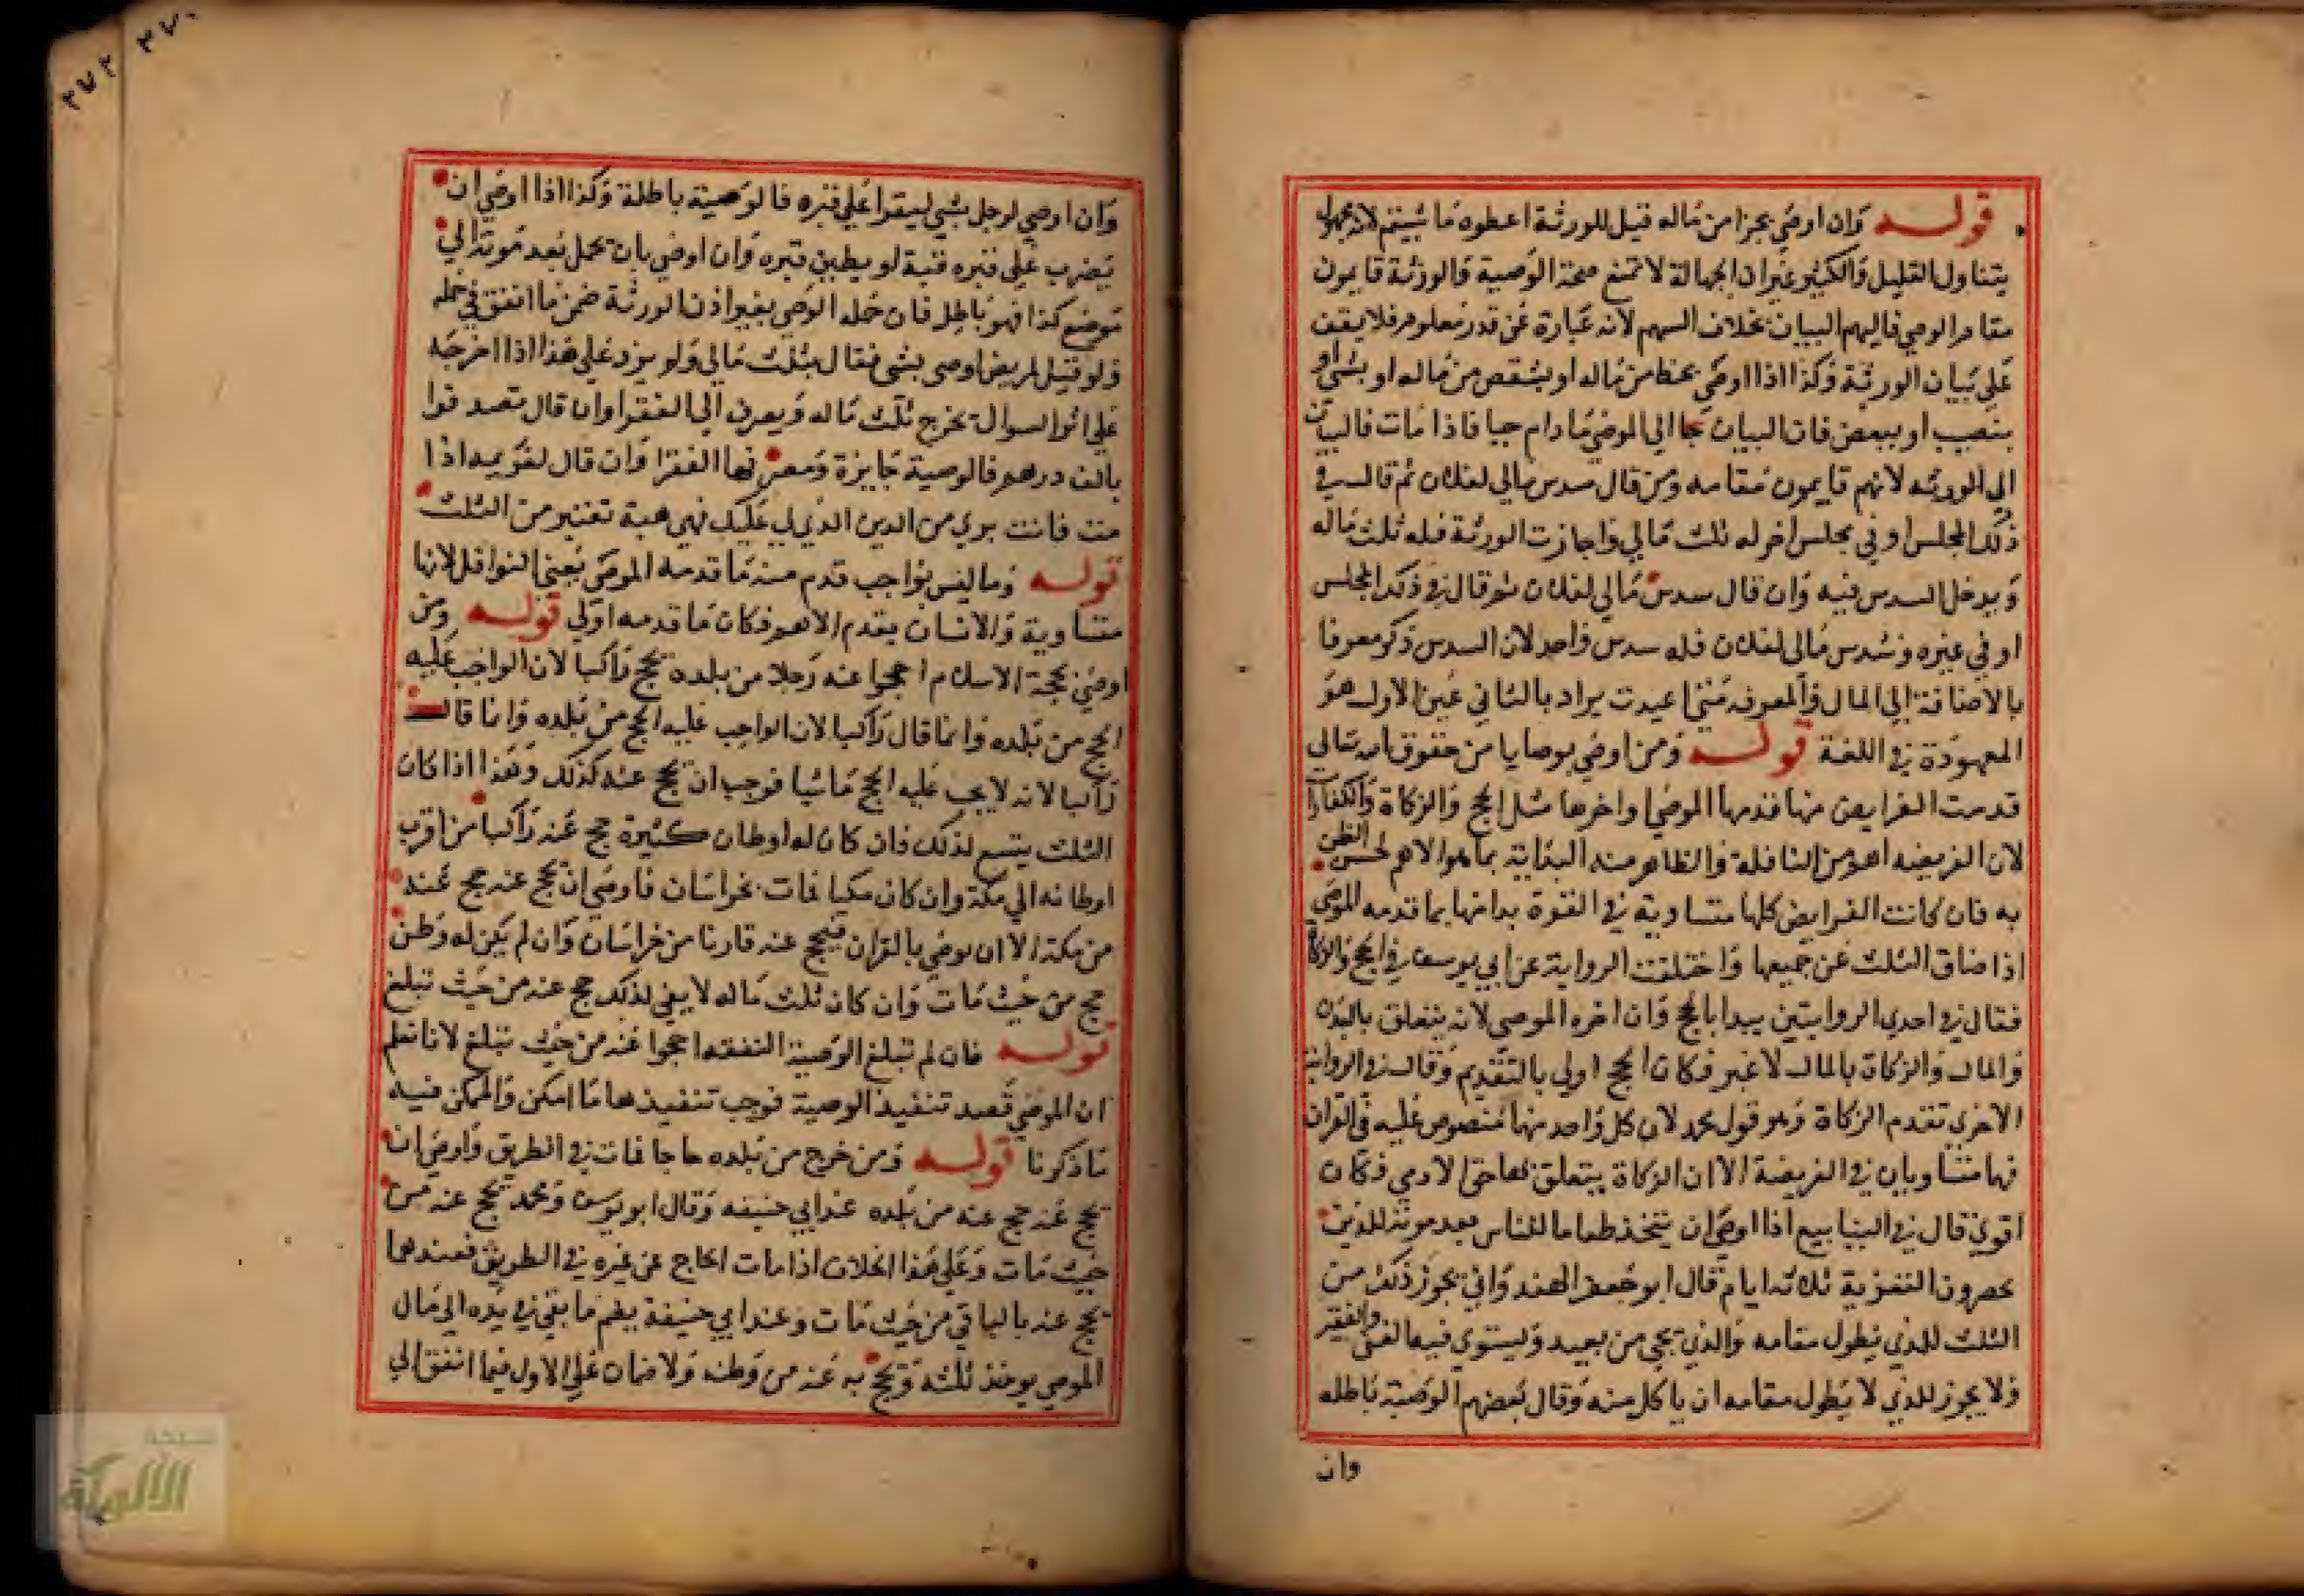 قوله وان اوصي بجزا من ماله قيل للورثة اعطوه ما شيتم لانه مجهول
يتناول القليل والكثير غير ان الجهالة لا تمنع صحة الوصية والورثة قايمون
مقام الموصي فاليهم البيان بخلاف السهم لانه عبارة عن قدر معلوم فلا يقف
علي بيان الورثة وكذا اذا اوصي بحظ من ماله او بشقص من ماله او بشي او
بنصيب او ببعض فان البيان الي الموصي ما دام حيا فاذا مات فالبيان
الي الورثه لانهم قايمون مقامه ومن قال سدس مالي لفلان ثم قال في
ذلك المجلس او في مجلس اخر له ثلث مالي واجازت الورثة فله ثلث ماله
ويدخل السدس فيه وان قال سدس مالي لفلان ثم قال في ذلك المجلس
او في غيره وسدس مالي لفلان فله سدس واحد لان السدس ذكر معرفا
بالاضافة الي المال والمعرفه متي اعيدت يراد بالثاني عين الاول هو
المعهودة في اللغة قوله ومن اوصي بوصايا من حقوق الله تعالي
قدمت الفرايض منها قدمها الموصي او اخرها مثل الحج والزكاة والكفارات
لان الفريضه اهم من النافلة والظاهر منه البداية بما هو الاهم لحسن الظن
به فان كانت الفرايض كلها متساوية في القوة بدا منها بما قدمه الموصي
اذا ضاق الثلث عن جميعها واختلفت الرواية عن ابي يوسف في الحج والزكاة
فقال في احدي الروايتين يبدا بالحج وان اخره الموصي لانه يتعلق بالبدن
والمال والزكاة بالمال لا غير فكان الحج اولي بالتقديم وقال في الرواية
الاخري تقدم الزكاة وهو قول محمد لان كل واحد منهما منصوص عليه في القران
فهما متساويان في الفريضة الا ان الزكاة يتعلق بها حق الادمي فكان
اقوي قال في الينابيع اذا اوصي ان يتخذ طعاما للناس بعد موته للذين
يحضرون التعزية ثلاثه ايام قال ابو جعفر الهندواني يجوز ذلك من
الثلث للذي يطول مقامه والذي يجي من بعيد ويستوي فيه الغني والفقير
ولا يجوز للذي لا يطول مقامه ان ياكل منه وقال بعضهم الوصية باطله
وان
٢٧٠
٢٧٢
وان اوصي لرجل بشي ليقرا علي قبره فالوصية باطلة وكذا اذا اوصي ان
يضرب علي قبره قبة او يطين قبره وان اوصي بان يحمل بعد موته الي
موضع كذا فهو باطل فان حمله الوصي بغير اذن الورثة ضمن ما انفق في حمله
ولو قيل لمريض اوصي بشي فقال بثلث مالي ولم يزد علي هذا اذا اخرجه
علي اثر السوال يخرج ثلث ماله ويصرف الي الفقرا وان قال تصدقوا
بالف درهم فالوصية جايزة ومصرفها الفقرا وان قال لغريمه اذا
مت فانت بري من الدين الذي لي عليك فهي هبة تعتبر من الثلث
قوله وما ليس بواجب قدم منه ما قدمه الموصي يعني النوافل لانها
متساوية والانسان يقدم الاهم فكان ما قدمه اولي قوله ومن
اوصي بحجة الاسلام احجوا عنه رجلا من بلده يحج راكبا لان الواجب عليه
الحج من بلده وانما قال راكبا لان الواجب عليه الحج من بلده وانما قال
راكبا لانه لا يجب عليه الحج ماشيا فوجب ان يحج عنه كذلك وهذا اذا كان
الثلث يتسع لذلك فان كان له اوطان كثيرة حج عنه راكبا من اقرب
اوطانه الي مكة وان كان مكيا فمات بخراسان فاوصي ان يحج عنه حج عنه
من مكة الا ان يوصي بالقران فيحج عنه قارنا من خراسان وان لم يكن له وطن
حج من حيث مات وان كان ثلث ماله لا يفي لذلك حج عنه من حيث تبلغ
قوله فان لم تبلغ الوصية النفقه احجوا عنه من حيث تبلغ لانا نعلم
ان الموصي قصد تنفيذ الوصية فوجب تنفيذها ما امكن والممكن فيه
ما ذكرنا قوله ومن خرج من بلده حاجا فمات في الطريق واوصي ان
يحج عنه حج عنه من بلده عند ابي حنيفه وقال ابو يوسف ومحمد يحج عنه من
حيث مات وعلي هذا الخلاف اذا مات الحاج عن غيره في الطريق فعندهما
يحج عنه بالباقي من حيث مات وعند ابي حنيفة يضم ما بقي في يده الي مال
الموصي يوخذ ثلثه ويحج به عنه من وطنه ولا ضمان علي الاول فيما انفق الي
شبكة
الألوكة